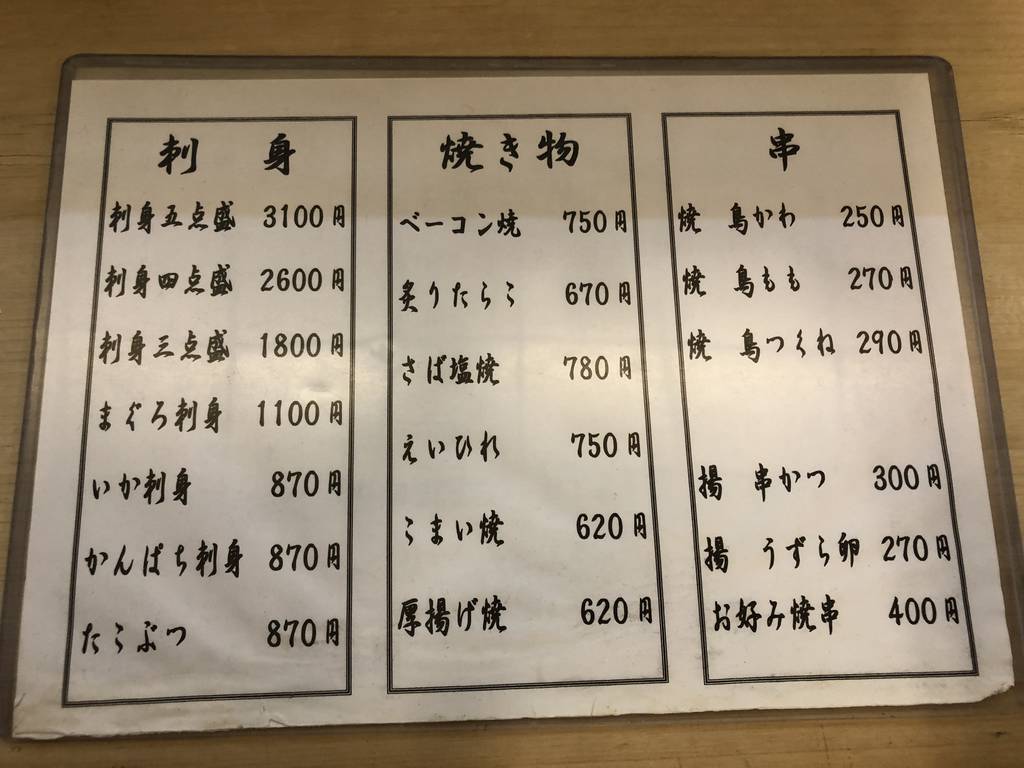 刺 身
刺身五点盛 3100円
刺身四点盛 2600円
刺身三点盛 1800円
まぐろ刺身 1100円
いか刺身 870円
かんぱち刺身 870円
たこぶつ 870円
焼き物
ベーコン焼 750円
炙りたらこ 670円
さば塩焼 780円
えいひれ 750円
こまい焼 620円
厚揚げ焼 620円
串
焼 鳥かわ 250円
焼 鳥もも 270円
焼 鳥つくね 290円
揚 串かつ 300円
揚 うずら卵 270円
お好み焼串 400円